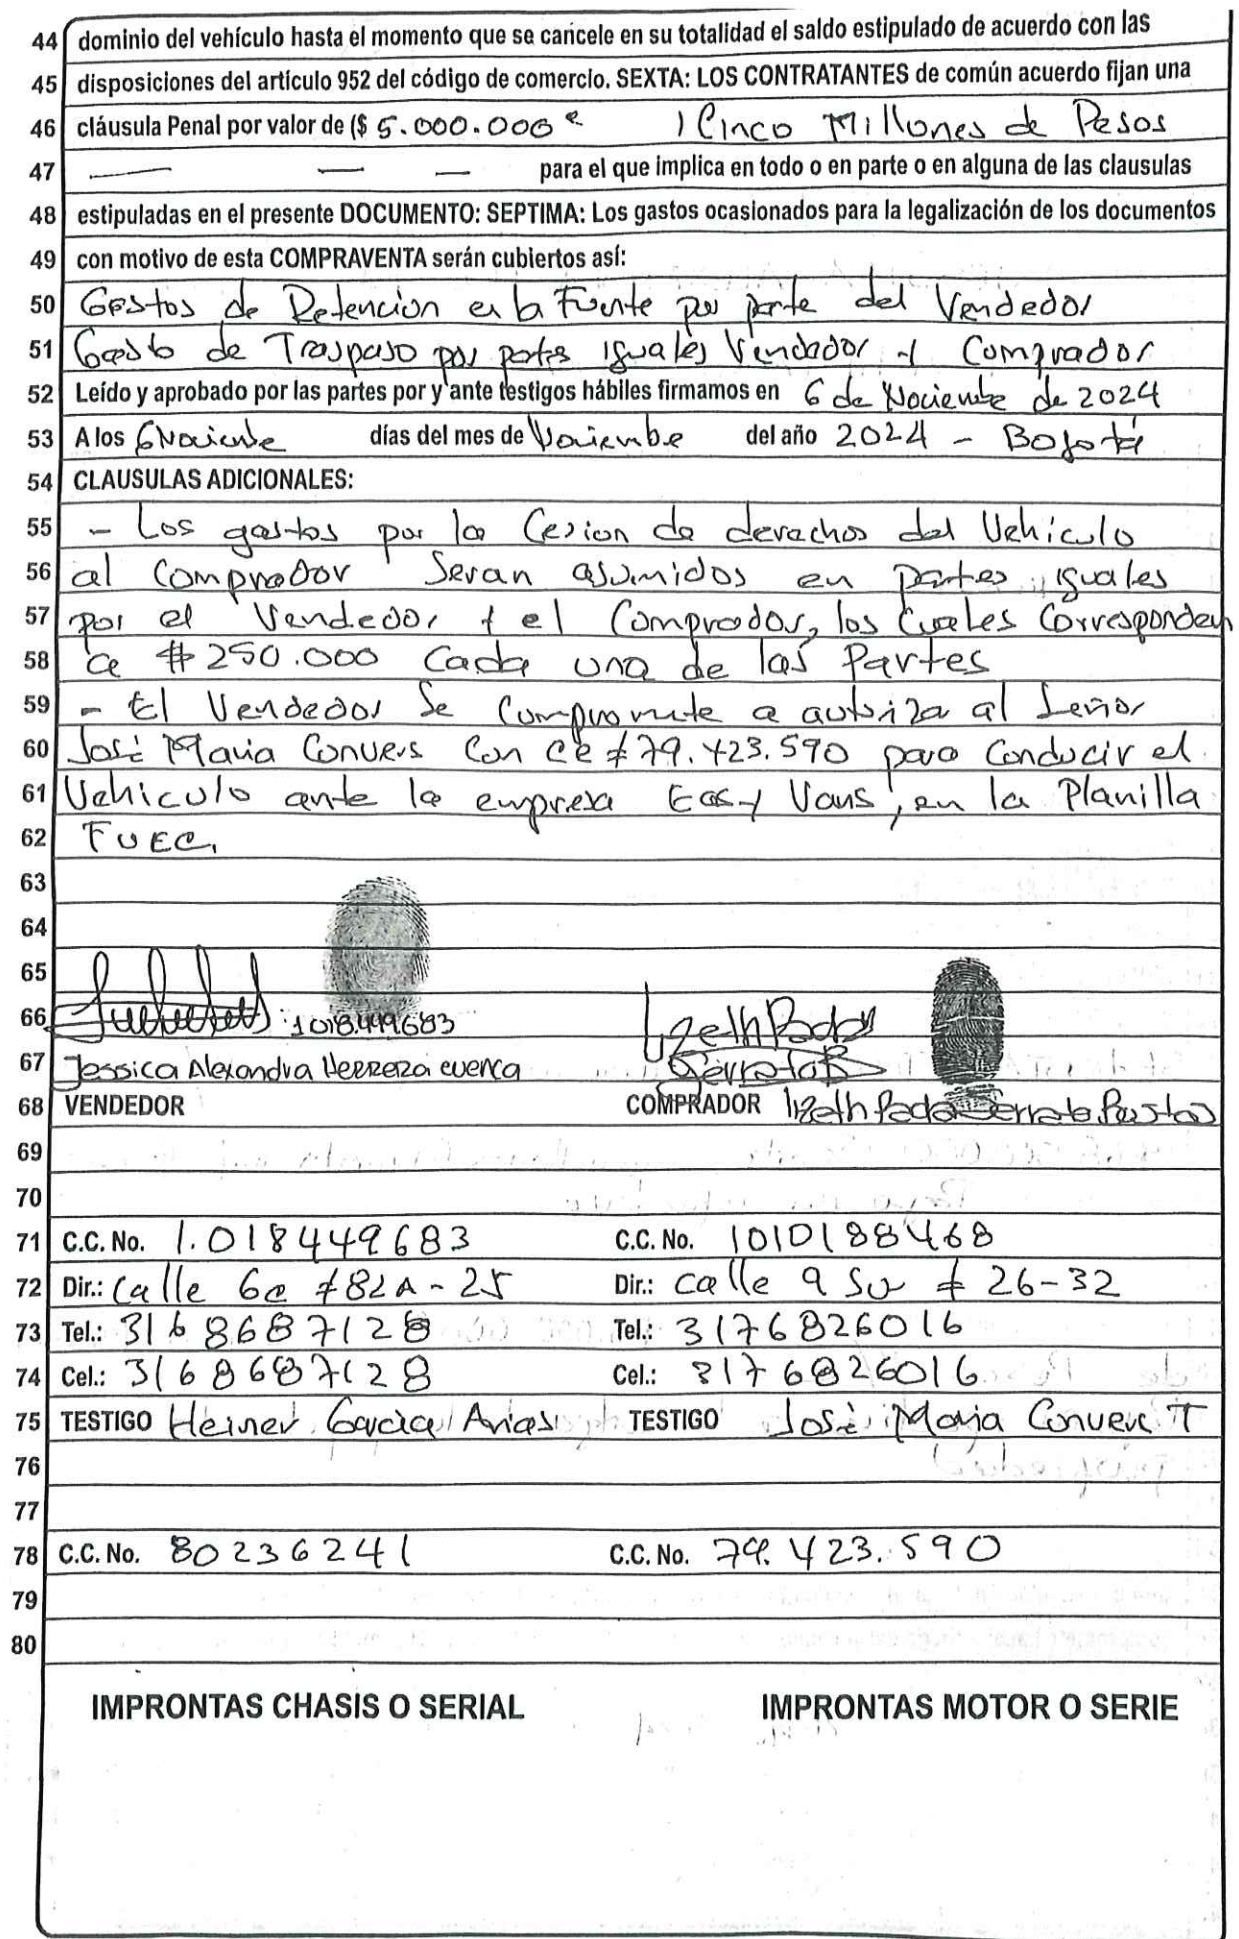 44 dominio del vehículo hasta el momento que se cancele en su totalidad el saldo estipulado de acuerdo con las
45 disposiciones del artículo 952 del código de comercio. SEXTA: LOS CONTRATANTES de común acuerdo fijan una
46 cláusula Penal por valor de ($ 5.000.000 ) Cinco Millones de Pesos
47 — — — para el que implica en todo o en parte o en alguna de las clausulas
48 estipuladas en el presente DOCUMENTO: SEPTIMA: Los gastos ocasionados para la legalización de los documentos
49 con motivo de esta COMPRAVENTA serán cubiertos así:
50 Gastos de Retencion en la Fuente por parte del Vendedor
51 Gasto de Traspaso por partes iguales Vendedor y Comprador
52 Leído y aprobado por las partes por y ante testigos hábiles firmamos en 6 de Noviembre de 2024
53 A los 6 días del mes de Noviembre del año 2024 - Bogotá
54 CLAUSULAS ADICIONALES:
55 - Los gastos por la Cesion de derechos del Vehiculo
56 al Comprador Seran asumidos en partes iguales
57 por el Vendedor y el Comprador, los Cuales Corresponden
58 a $250.000 Cada una de las Partes
59 - El Vendedor Se Compromete a autoriza al Señor
60 José Maria Convers Con CC #79.423.590 para Conducir el
61 Vehiculo ante la empresa Easy Vans, en la Planilla
62 FUEC.
63
64
65
66 1018.449683 Lizeth Paola
67 Jessica Alexandra Herrera cuenca Serrato B
68 VENDEDOR COMPRADOR Lizeth Paola Serrato Bustos
69
70
71 C.C. No. 1.018449683 C.C. No. 1010188468
72 Dir.: Calle 6c #82A-25 Dir.: Calle 9 Sur # 26-32
73 Tel.: 3168687128 Tel.: 3176826016
74 Cel.: 3168687128 Cel.: 3176826016
75 TESTIGO Heiner Garcia Arias TESTIGO José Maria Convers T
76
77
78 C.C. No. 80236241 C.C. No. 79.423.590
79
80
IMPRONTAS CHASIS O SERIAL IMPRONTAS MOTOR O SERIE